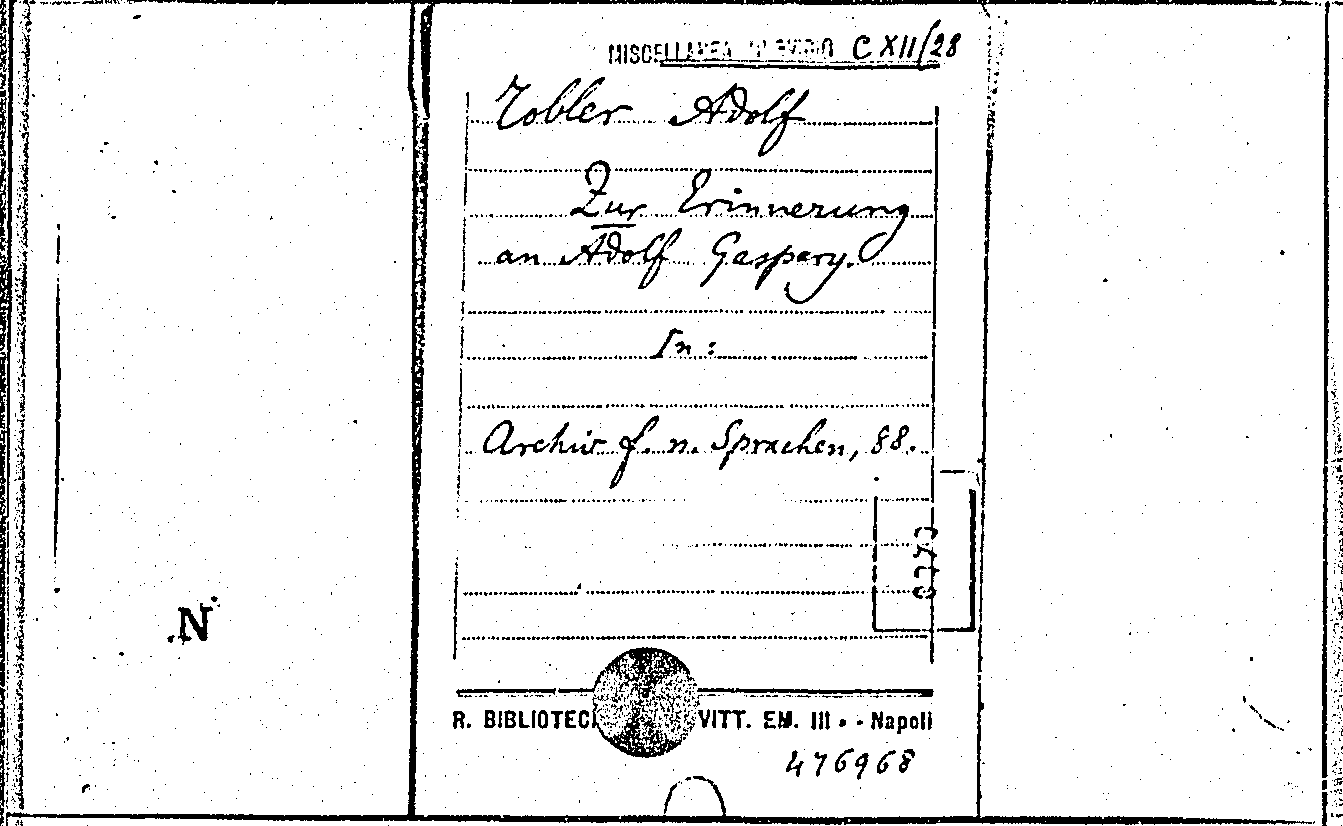 MISCELLANEA D'OVIDIO C XII/28
Tobler Adolf
Zur Erinnerung
an Adolf Gaspary.
In:
Archiv f. n. Sprachen, 88.
N
R. BIBLIOTEC VITT. EM. III - Napoli
476968